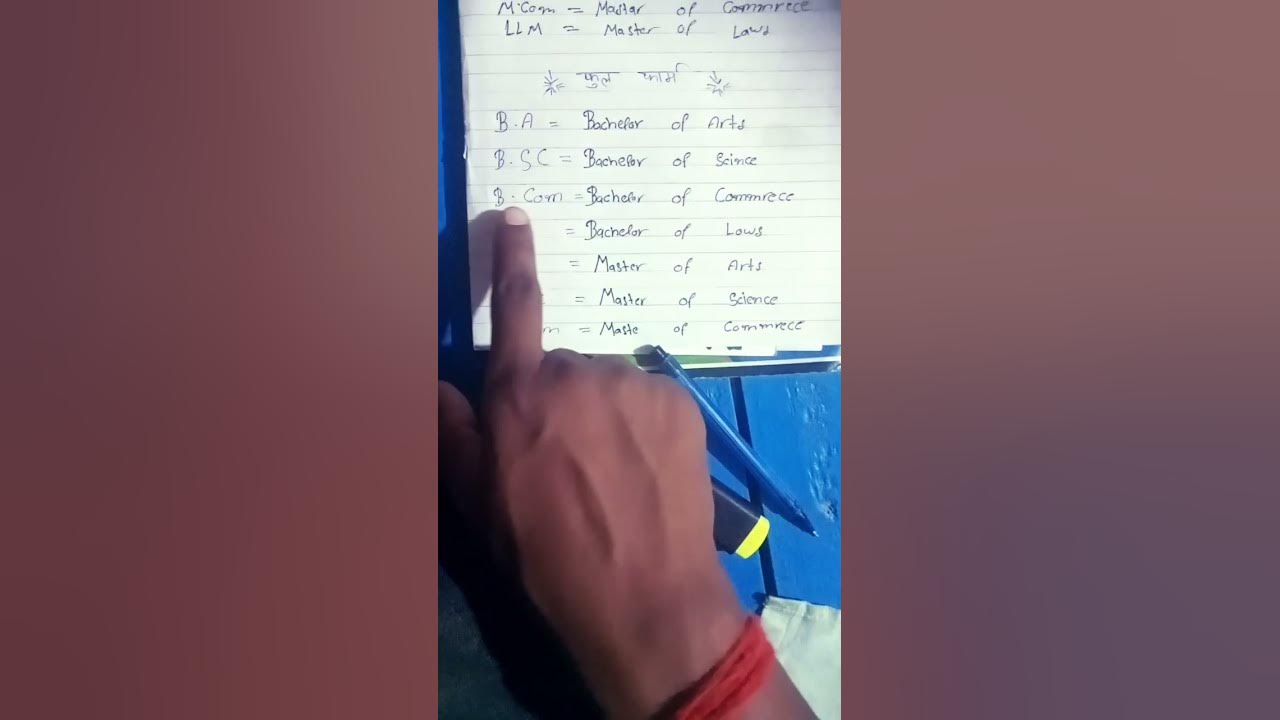 M.Com = Mastar of Commrece
LLM = Master of Laws
फुल फार्म
B.A = Bachelor of Arts
B.SC = Bachelor of Scince
B.Com = Bachelor of Commrece
= Bachelor of Laws
= Master of Arts
= Master of Science
m = Maste of Commrece